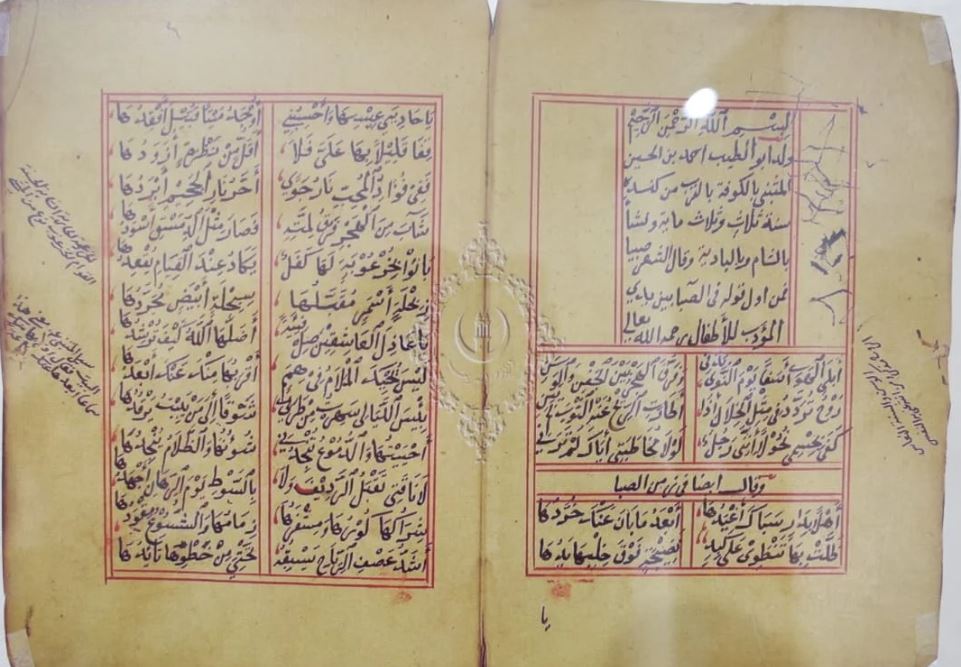 بِسْمِ اللَّهِ الرَّحْمَنِ الرَّحِيمِ
ولد ابو الطيب احمد بن الحسين
المتنبي بالكوفة بالقرب من كندة
سنة ثلاث وثلاث ماية ونشأ
بالشام وبالبادية وقال الشعر صبيا
فمن اول قوله في الصبا
المؤدب للأطفال رحمه الله تعالى
أبلى الهوى أسفا يوم النوى بدني وفرق الهجر بين الجفن والوسن
روح تردد في مثل الخلال إذا أطارت الريح عنه الثوب لم يبن
كفى بجسمي نحولا أنني رجل لولا مخاطبتي إياك لم ترني
وقال ايضا في زمن الصبا
أهلا بدار سباك أغيدها أبعد ما بان عنك خردها
ظلت بها تنطوي على كبد نضيجة فوق خلبها يدها
يا
يا حاديي عيسها وأحسبني أوجد ميتا قبيل أفقدها
قفا قليلا بها علي فلا أقل من نظرة أزودها
ففي فؤاد المحب نار جوى أحر نار الجحيم أبردها
شاب من الهجر فرق لمته فصار مثل الدمقس أسودها
بانوا بخرعوبة لها كفل يكاد عند القيام يقعدها
ربحلة أسمر مقبلها سبحلة أبيض مجردها
يا عاذل العاشقين فئة أضلها الله كيف ترشدها
ليس يحيك الملام في همم أقربها منك عنك أبعدها
بئس الليالي سهرت من طربي شوقا إلى من يبيت يرقدها
أحييتها والدموع تنجدني شؤونها والظلام ينجدها
لا ناقتي تقبل الرديف ولا بالسوط يوم الرهان أجهدها
شراكها كورها ومشفرها زمامها والشسوع مقودها
أشد عصف الرياح يسبقه تحتي من خطوها تأيدها